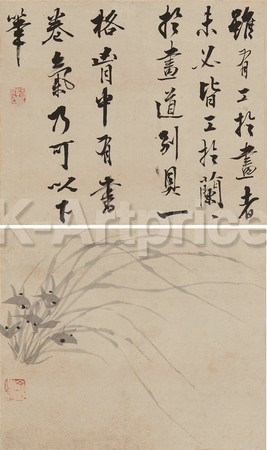 雖有工扵畫者
未必皆工扵蘭〻
扵畫道別具一
格胷中有書
卷氣乃可以下
筆
K-Artprice